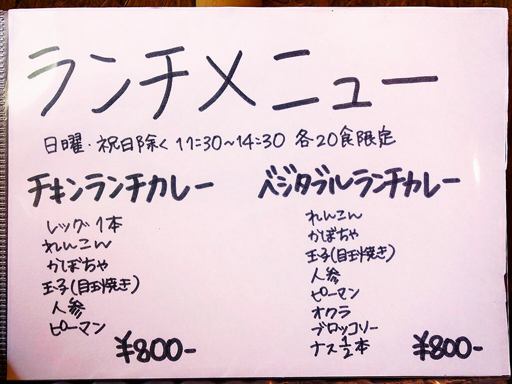 ランチメニュー
日曜・祝日除く 11:30~14:30 各20食限定
チキンランチカレー
レッグ1本
れんこん
かぼちゃ
玉子(目玉焼き)
人参
ピーマン
¥800-
ベジタブルランチカレー
れんこん
かぼちゃ
玉子(目玉焼き)
人参
ピーマン
オクラ
ブロッコリー
ナス1/2本
¥800-